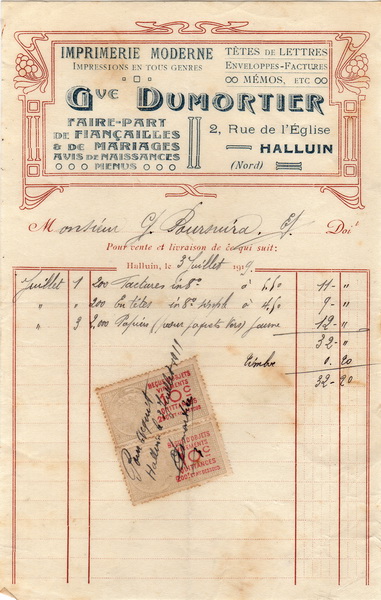 IMPRIMERIE MODERNE
IMPRESSIONS EN TOUS GENRES
TÊTES DE LETTRES
ENVELOPPES-FACTURES
MÉMOS, ETC
Gve DUMORTIER
FAIRE-PART
DE FIANÇAILLES
& DE MARIAGES
AVIS DE NAISSANCES
MENUS
2, RUE DE L'ÉGLISE
HALLUIN
(Nord)
Monsieur Doit
Pour vente et livraison de ce qui suit:
Halluin, le 3 juillet 1919.
Juillet 1 200 Factures in 8° à 5.50 11 - "
" " 200 En têtes in 8° à 4.50 9 - "
" 3 2,000 Papiers (pour paquets Vers) Jaune 12 - "
32 - "
Timbre 0.20
32-20
Pour acquit
Halluin juillet 1919
REÇUS D'OBJETS
10c
QUITTANCES
REÇUS D'OBJETS
10c
QUITTANCES